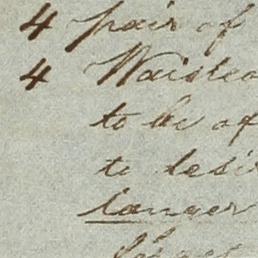 4 pair of
4 Waistco
to be of
to desi
longer